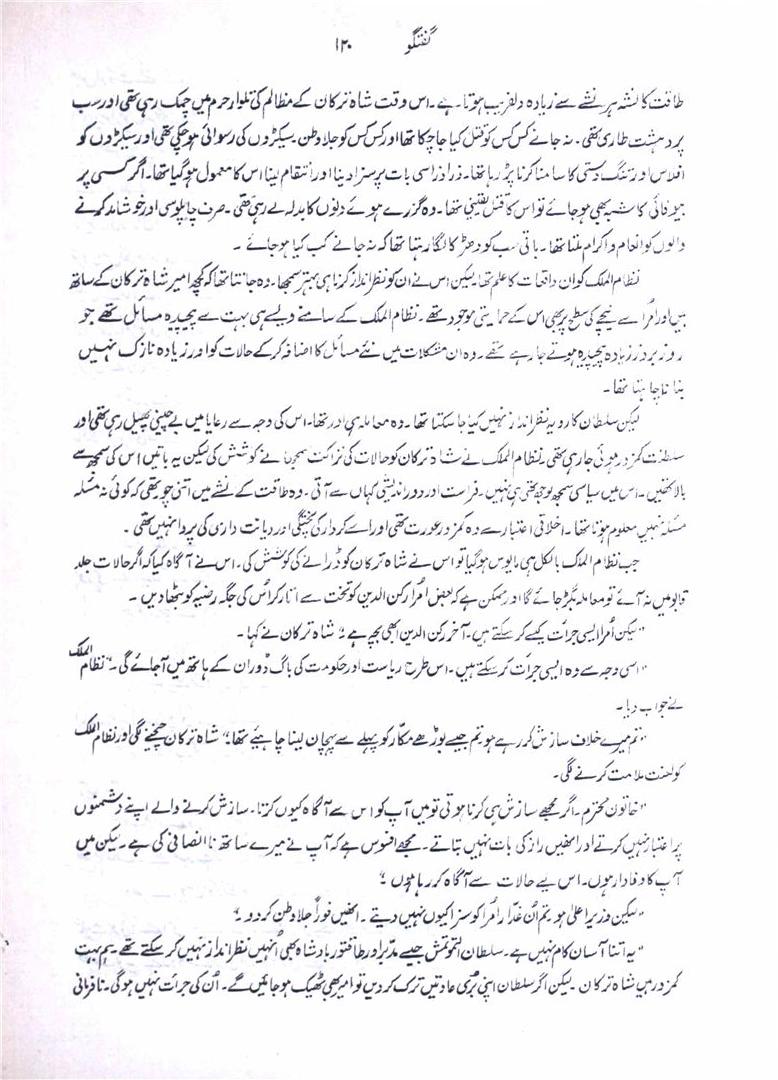 گفتگو ۱۲۰
طاقت کا نشہ ہر نشے سے زیادہ دلفریب ہوتا ہے۔ اس وقت شاہ ترکان کے مظالم کی تلوار حرم میں چمک رہی تھی اور سب
پر دہشت طاری تھی۔ نہ جانے کس کس کو قتل کیا جا چکا تھا اور کس کس کو جلا وطن سیکڑوں کی رسوائی ہو چکی تھی اور سیکڑوں کو
افلاس اور تنگ دستی کا سامنا کرنا پڑ رہا تھا۔ ذرا ذرا سی بات پر سزا دینا اور انتقام لینا اس کا معمول ہو گیا تھا۔ اگر کسی پر
بیوفائی کا شبہ بھی ہو جائے تو اس کا قتل یقینی تھا۔ وہ گزرے ہوئے دنوں کا بدلہ لے رہی تھی۔ صرف چاپلوسی اور خوشامد کرنے
والوں کو انعام و اکرام ملتا تھا۔ باقی سب کو دھڑکا لگا رہتا تھا کہ نہ جانے کب کیا ہو جائے۔
نظام الملک کو ان واقعات کا علم تھا لیکن اس نے ان کو نظر انداز کرنا ہی بہتر سمجھا۔ وہ جانتا تھا کہ کچھ امیر شاہ ترکان کے ساتھ
ہیں اور امرا سے نیچے کی سطح پر بھی اس کے حمایتی موجود تھے۔ نظام الملک کے سامنے ویسے ہی بہت سے پیچیدہ مسائل تھے جو
روز بروز زیادہ پیچیدہ ہوتے جا رہے تھے۔ وہ ان مشکلات میں نئے مسائل کا اضافہ کر کے حالات کو اور زیادہ نازک نہیں
بنانا چاہتا تھا۔
لیکن سلطان کا رویہ نظر انداز نہیں کیا جا سکتا تھا۔ وہ معاملہ ہی اور تھا۔ اس کی وجہ سے رعایا میں بے چینی پھیل رہی تھی اور
سلطنت کمزور ہوئی جا رہی تھی۔ نظام الملک نے شاہ ترکان کو حالات کی نزاکت سمجھانے کوشش کی لیکن یہ باتیں اس کی سمجھ سے
بالا تھیں۔ اس میں سیاسی سمجھ بوجھ تھی ہی نہیں۔ فراست اور دور اندیشی کہاں سے آتی۔ وہ طاقت کے نشے میں اتنی چور تھی کہ کوئی نہ مسئلہ
مسئلہ نہیں معلوم ہوتا تھا۔ اخلاقی اعتبار سے وہ کمزور عورت تھی اور اسے کردار کی پختگی اور دیانت داری کی پروا نہیں تھی۔
جب نظام الملک بالکل ہی مایوس ہو گیا تو اس نے شاہ ترکان کو ڈرانے کی کوشش کی۔ اس نے آگاہ کیا کہ اگر حالات جلد
قابو میں نہ آئے تو معاملہ بگڑ جائے گا اور ممکن ہے کہ بعض امرا رکن الدین کو تخت سے اتار کر اس کی جگہ رضیہ کو بٹھا دیں۔
"لیکن امرا ایسی جرأت کیسے کر سکتے ہیں۔ آخر رکن الدین ابھی بچہ ہے" شاہ ترکان نے کہا۔
"اسی وجہ سے وہ ایسی جرأت کر سکتے ہیں۔ اس طرح ریاست اور حکومت کی باگ ڈور ان کے ہاتھ میں آ جائے گی۔" نظام الملک
نے جواب دیا۔
"تم میرے خلاف سازش کر رہے ہو تم جیسے بوڑھے مکار کو پہلے سے پہچان لینا چاہیئے تھا" شاہ ترکان چیخنے لگی اور نظام الملک
کو لعنت ملامت کرنے لگی۔
"خاتون محترم۔ اگر مجھے سازش ہی کرنا ہوتی تو میں آپ کو اس سے آگاہ کیوں کرتا۔ سازش کرنے والے اپنے دشمنوں
پر اعتبار نہیں کرتے اور انھیں راز کی بات نہیں بتاتے۔ مجھے افسوس ہے کہ آپ نے میرے ساتھ ناانصافی کی ہے۔ لیکن میں
آپ کا وفادار ہوں۔ اس لیے حالات سے آگاہ کر رہا ہوں۔"
"لیکن وزیر اعلیٰ ہو تم ان غدار امرا کو سزا کیوں نہیں دیتے۔ انھیں فوراً جلا وطن کر دو۔"
"یہ اتنا آسان کام نہیں ہے۔ سلطان التوتمش جیسے مدبر اور طاقتور بادشاہ بھی اُنہیں نظر انداز نہیں کر سکتے تھے۔ ہم بہت
کمزور ہیں شاہ ترکان۔ لیکن اگر سلطان اپنی بُری عادتیں ترک کر دیں تو امیر بھی ٹھیک ہو جائیں گے۔ اُن کی جرأت نہیں ہوگی۔ نافرمانی